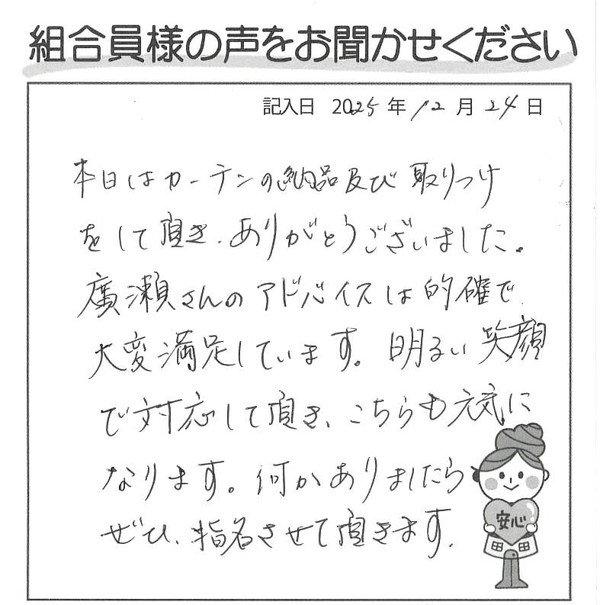 組合員様の声をお聞かせください
記入日 2025年12月24日
本日はカーテンの納品及び取りつけ
をして頂き、ありがとうございました。
廣瀬さんのアドバイスは的確で
大変満足しています。明るい笑顔
で対応して頂き、こちらも元気に
なります。何かありましたら
ぜひ、指名させて頂きます。
安心